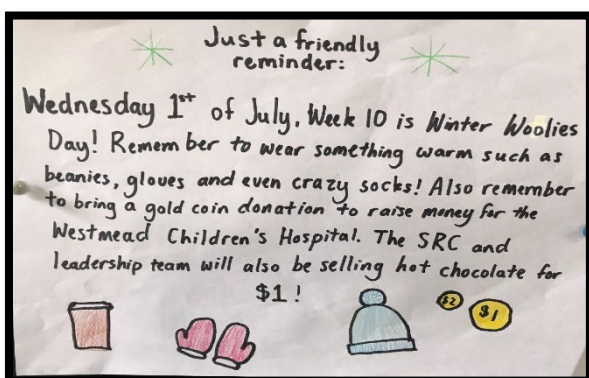 Just a friendly
reminder:
Wednesday 1st of July, Week 10 is Winter Woolies
Day! Remember to wear something warm such as
beanies, gloves and even crazy socks! Also remember
to bring a gold coin donation to raise money for the
Westmead Children's Hospital. The SRC and
leadership team will also be selling hot chocolate for
$1!
$2
$1